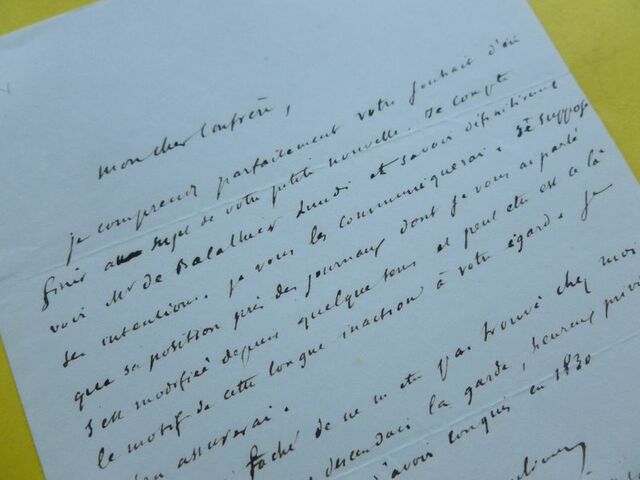 mon cher Confrère,
je comprends parfaitement votre souhait d'en
finir au sujet de votre petite nouvelle. Je compte
voir Mr de Balathier Lundi et savoir définitivement
ses intentions. je vous les communiquerai. Je suppose
que sa position près des journaux dont je vous ai parlé
s'est modifiée depuis quelque tems et peut etre est ce là
le motif de cette longue inaction à votre égard. Je
m'en assurerai.
faché de ne m'etre pas trouvé chez moi
descendais la garde, heureux
d'avoir conquis en 1830